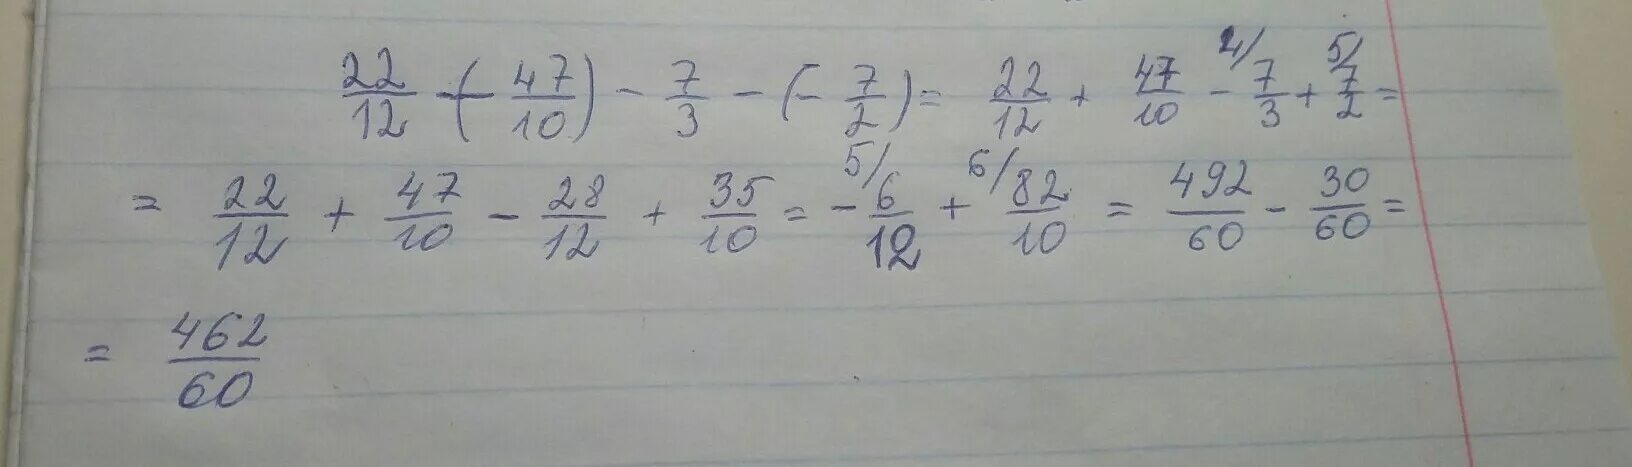 22/12 - (- 47/10) - 7/3 - (- 7/2) = 22/12 + 47/10 - 4/ 7/3 + 5/ 7/2 =
= 22/12 + 47/10 - 28/12 + 35/10 = - 5/ 6/12 + 6/ 82/10 = 492/60 - 30/60 =
= 462/60